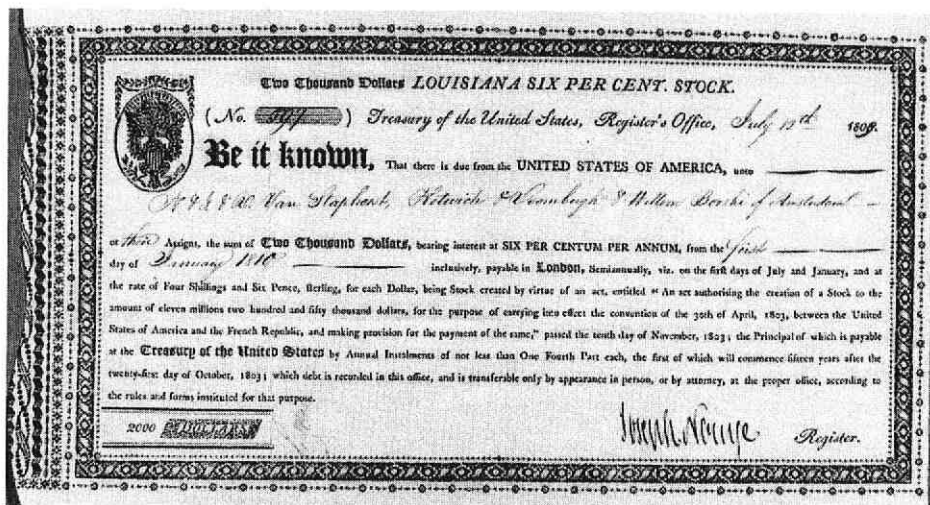 Two Thousand Dollars LOUISIANA SIX PER CENT. STOCK.
(No. ) Treasury of the United States, Register's Office, July 1809.
Be it known, That there is due from the UNITED STATES OF AMERICA, unto
Van Staphorst, & Willem Borski of Amsterdam
or their Assigns, the sum of Two Thousand Dollars, bearing interest at SIX PER CENTUM PER ANNUM, from the first
day of January 1810 inclusively, payable in London, Semiannually, viz. on the first days of July and January, and at
the rate of Four Shillings and Six Pence, sterling, for each Dollar, being Stock created by virtue of an act, entitled "An act authorising the creation of a Stock to the
amount of eleven millions two hundred and fifty thousand dollars, for the purpose of carrying into effect the convention of the 30th of April, 1803, between the United
States of America and the French Republic, and making provision for the payment of the same," passed the tenth day of November, 1803; the Principal of which is payable
at the Treasury of the United States by Annual Instalments of not less than One Fourth Part each, the first of which will commence fifteen years after the
twenty-first day of October, 1803; which debt is recorded in this office, and is transferable only by appearance in person, or by attorney, at the proper office, according to
the rules and forms instituted for that purpose.
2000 DOLLARS
Joseph Nourse Register.